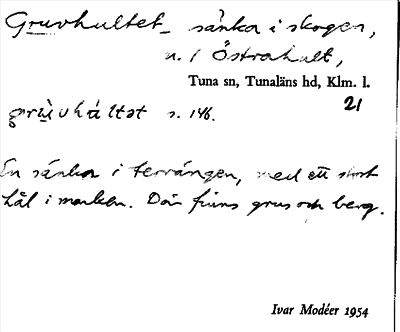 Gruvhultet sänka i skogen,
u. / Östrahult,
Tuna sn, Tunaläns hd, Klm. l.
21
s. 146.
En sänka i terrängen, med ett stort
hål i marken. Där finns grus och berg.
Ivar Modéer 1954